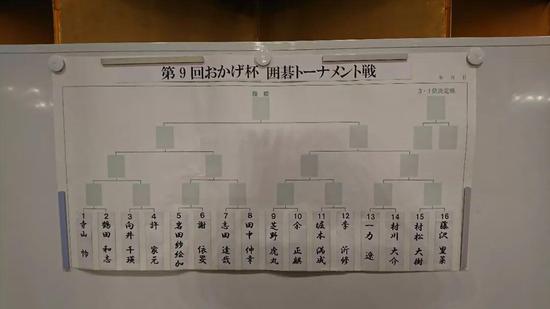 第9回おかげ杯 囲碁トーナメント戦
年 月 日
優勝
3・4位決定戦
1 幸山 怜
2 鶴田 和志
3 向井 千瑛
4 許 家元
5 岩田紗絵加
6 謝 依旻
7 志田 達哉
8 田中 伸幸
9 芝野 虎丸
10 余 正麒
11 堀本 満成
12 李 沂修
13 一力 遼
14 村川 大介
15 村松 大樹
16 藤沢 里菜